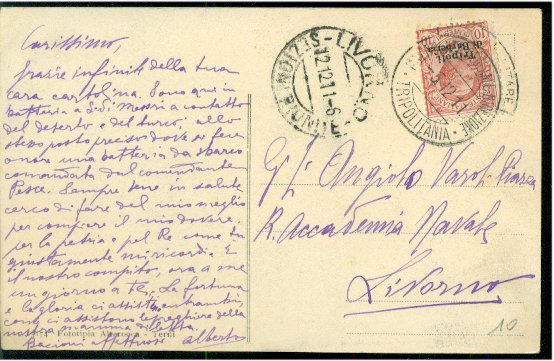 Carissimo,
grazie infinite della tua
cara cartolina. Sono qui in
batteria a Sidi Messri a contatto
del deserto e dei turchi allo
stesso posto preciso dove si fece
onore una batteria da sbarco
comandata dal comandante
Pesce. Sempre bene in salute
cerco di fare del mio meglio
per compiere il mio dovere
per la patria e pel Re come tu
giustamente mi ricordi. È
il nostro compito, ora a me
un giorno a te. La fortuna
e la gloria ci assistano entrambi
come ci assistono le preghiere della
nostra mamma diletta
Bacioni affettuosi alberto
Fototipia Alterocca - Terni
LIVORNO
12.12.11-6
10
Tripoli
di Barberia
TRIPOLITANIA
Angiolo Varoli Piazza
R. Accademia Navale
Livorno
10